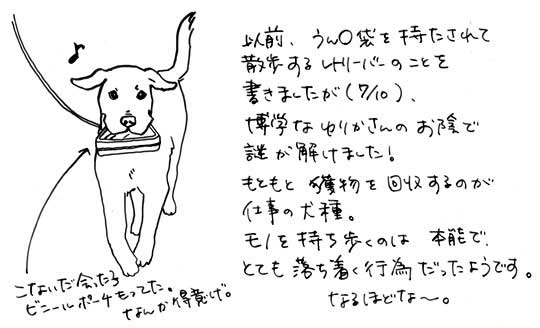 以前、うん〇袋を持たされて
散歩するレトリーバーのことを
書きましたが(7/10)、
博学なゆりかさんのお陰で
謎が解けました!
もともと獲物を回収するのが
仕事の犬種。
モノを持ち歩くのは本能で、
とても落ち着く行為だったようです。
なるほどな〜。
こないだ会ったら
ビニールポーチもってた。
なんか得意げ。